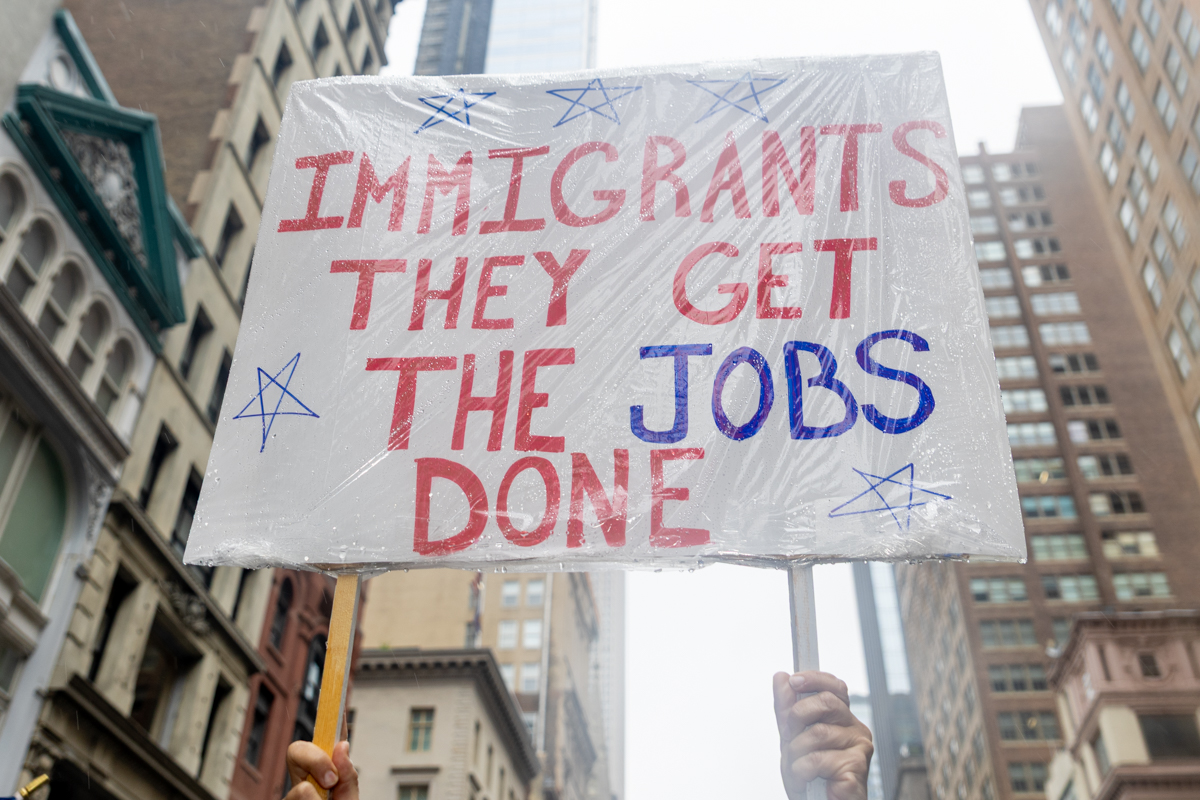 IMMIGRANTS
THEY GET
THE JOBS
DONE